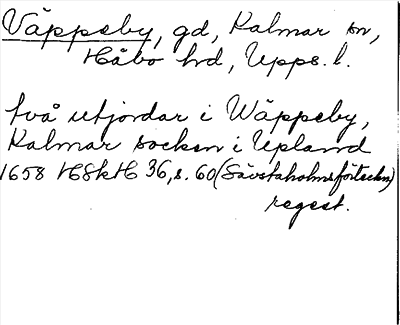 Väppeby, gd, Kalmar sn,
Håbo hd, Upps. l.
två utjordar i Wäppeby,
Kalmar socken i Upland
1658 HSkH 36, s. 60 (Sävstaholmsförteckn)
regest.